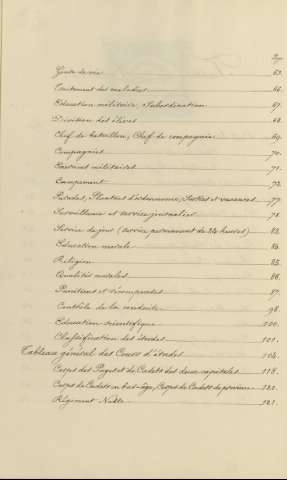 Page
Genre de vie 63.
Traitement des malades 66.
Education militaire, Subordination 67.
Division des élèves 68.
Chef de bataillon, Chef de compagnie 69.
Compagnies 70.
Exercices militaires 71.
Campement 72.
Parades, Plantons d'ordonnance, Sorties et vacances 77.
Surveillance et service journalier 78.
Service de jour (service permanent de 24 heures) 82.
Education morale 84.
Religion 85.
Qualités morales 86.
Punitions et récompenses 87.
Contrôle de la conduite 98.
Education scientifique 100.
Classification des études 101.
Tableau général des Cours d'études 104.
Corps des Pages et de Cadets des deux capitales 118.
Corps de Cadets en bas-âge, Corps de Cadets de province 120.
Régiment-Noble 121.